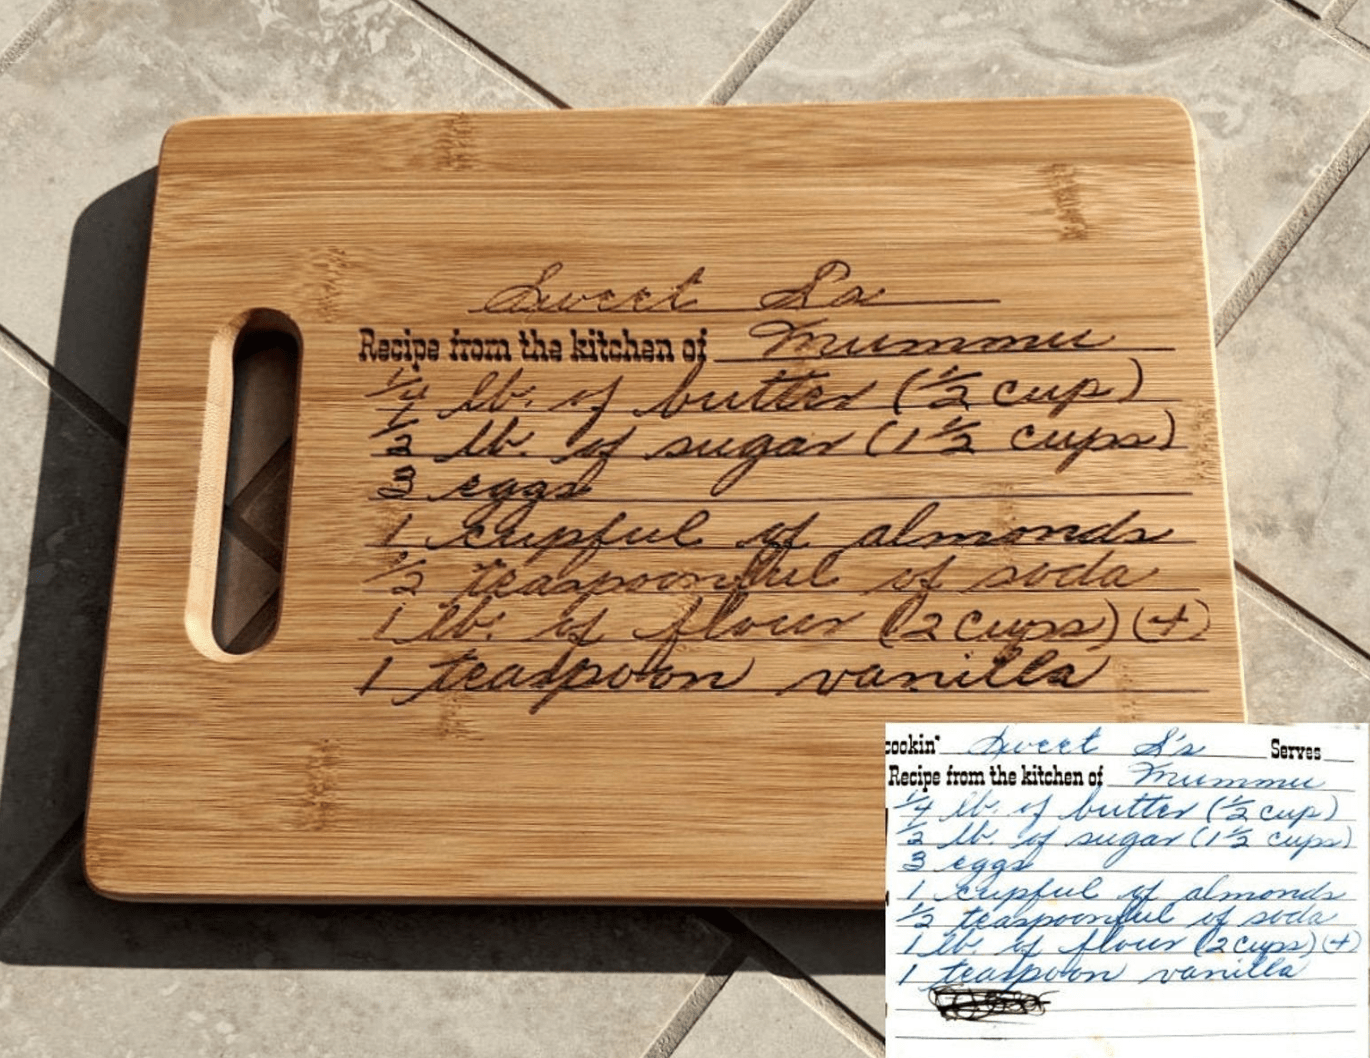 Sweet S's
Recipe from the kitchen of Mummu
1/4 lb. of butter (1/2 cup)
1/2 lb. of sugar (1 1/2 cups)
3 eggs
1 cupful of almonds
1/2 teaspoonful of soda
1 lb. of flour (2 cups) (+)
1 teaspoon vanilla
cookin' Sweet S's Serves
Recipe from the kitchen of Mummu
1/4 lb. of butter (1/2 cup)
1/2 lb. of sugar (1 1/2 cups)
3 eggs
1 cupful of almonds
1/2 teaspoonful of soda
1 lb. of flour (2 cups) (+)
1 teaspoon vanilla